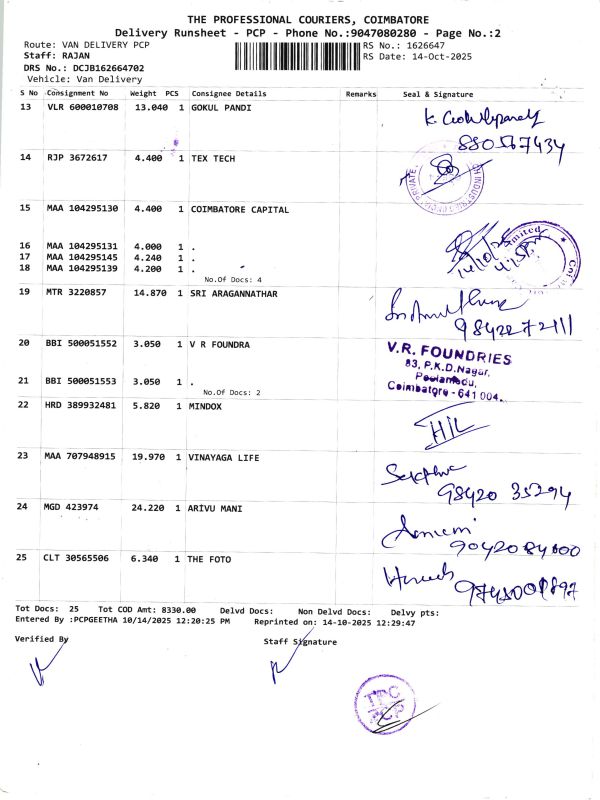 THE PROFESSIONAL COURIERS, COIMBATORE
Delivery Runsheet - PCP - Phone No.:9047080280 - Page No.:2
Route: VAN DELIVERY PCP RS No.: 1626647
Staff: RAJAN RS Date: 14-Oct-2025
DRS No.: DCJB162664702
Vehicle: Van Delivery
S No Consignment No Weight PCS Consignee Details Remarks Seal & Signature
13 VLR 600010708 13.040 1 GOKUL PANDI
14 RJP 3672617 4.400 1 TEX TECH
15 MAA 104295130 4.400 1 COIMBATORE CAPITAL
16 MAA 104295131 4.000 1 .
17 MAA 104295145 4.240 1 .
18 MAA 104295139 4.200 1 .
No.Of Docs: 4
14/10/25
19 MTR 3220857 14.870 1 SRI ARAGANNATHAR
20 BBI 500051552 3.050 1 V R FOUNDRA
V.R. FOUNDRIES
83, P.K.D.Nagar,
Peelamedu,
Coimbatore - 641 004.
21 BBI 500051553 3.050 1 .
No.Of Docs: 2
22 HRD 389932481 5.820 1 MINDOX
23 MAA 707948915 19.970 1 VINAYAGA LIFE
98420 35294
24 MGD 423974 24.220 1 ARIVU MANI
25 CLT 30565506 6.340 1 THE FOTO
Tot Docs: 25 Tot COD Amt: 8330.00 Delvd Docs: Non Delvd Docs: Delvy pts:
Entered By :PCPGEETHA 10/14/2025 12:20:25 PM Reprinted on: 14-10-2025 12:29:47
Verified By Staff Signature
TPC
PCP